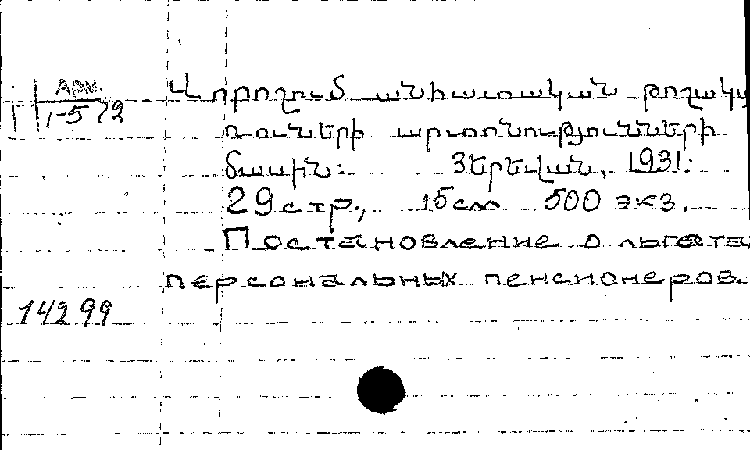 Арм.
1-572
Վորոշում անհատական թոշակա
ռուների արտոնությունների
մասին:   Յերեվան, 1931:
29 стр., 15 см   500 экз.
Постановление о льготах
персональных пенсионеров.
14299